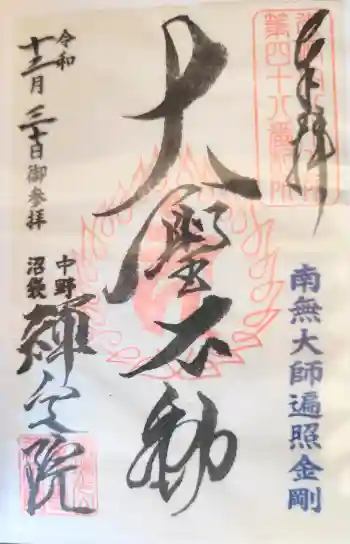 奉拝
第四十八番
南無大師遍照金剛
大聖不動
令和
十二月三十日御参拝
中野
沼袋
禪定院